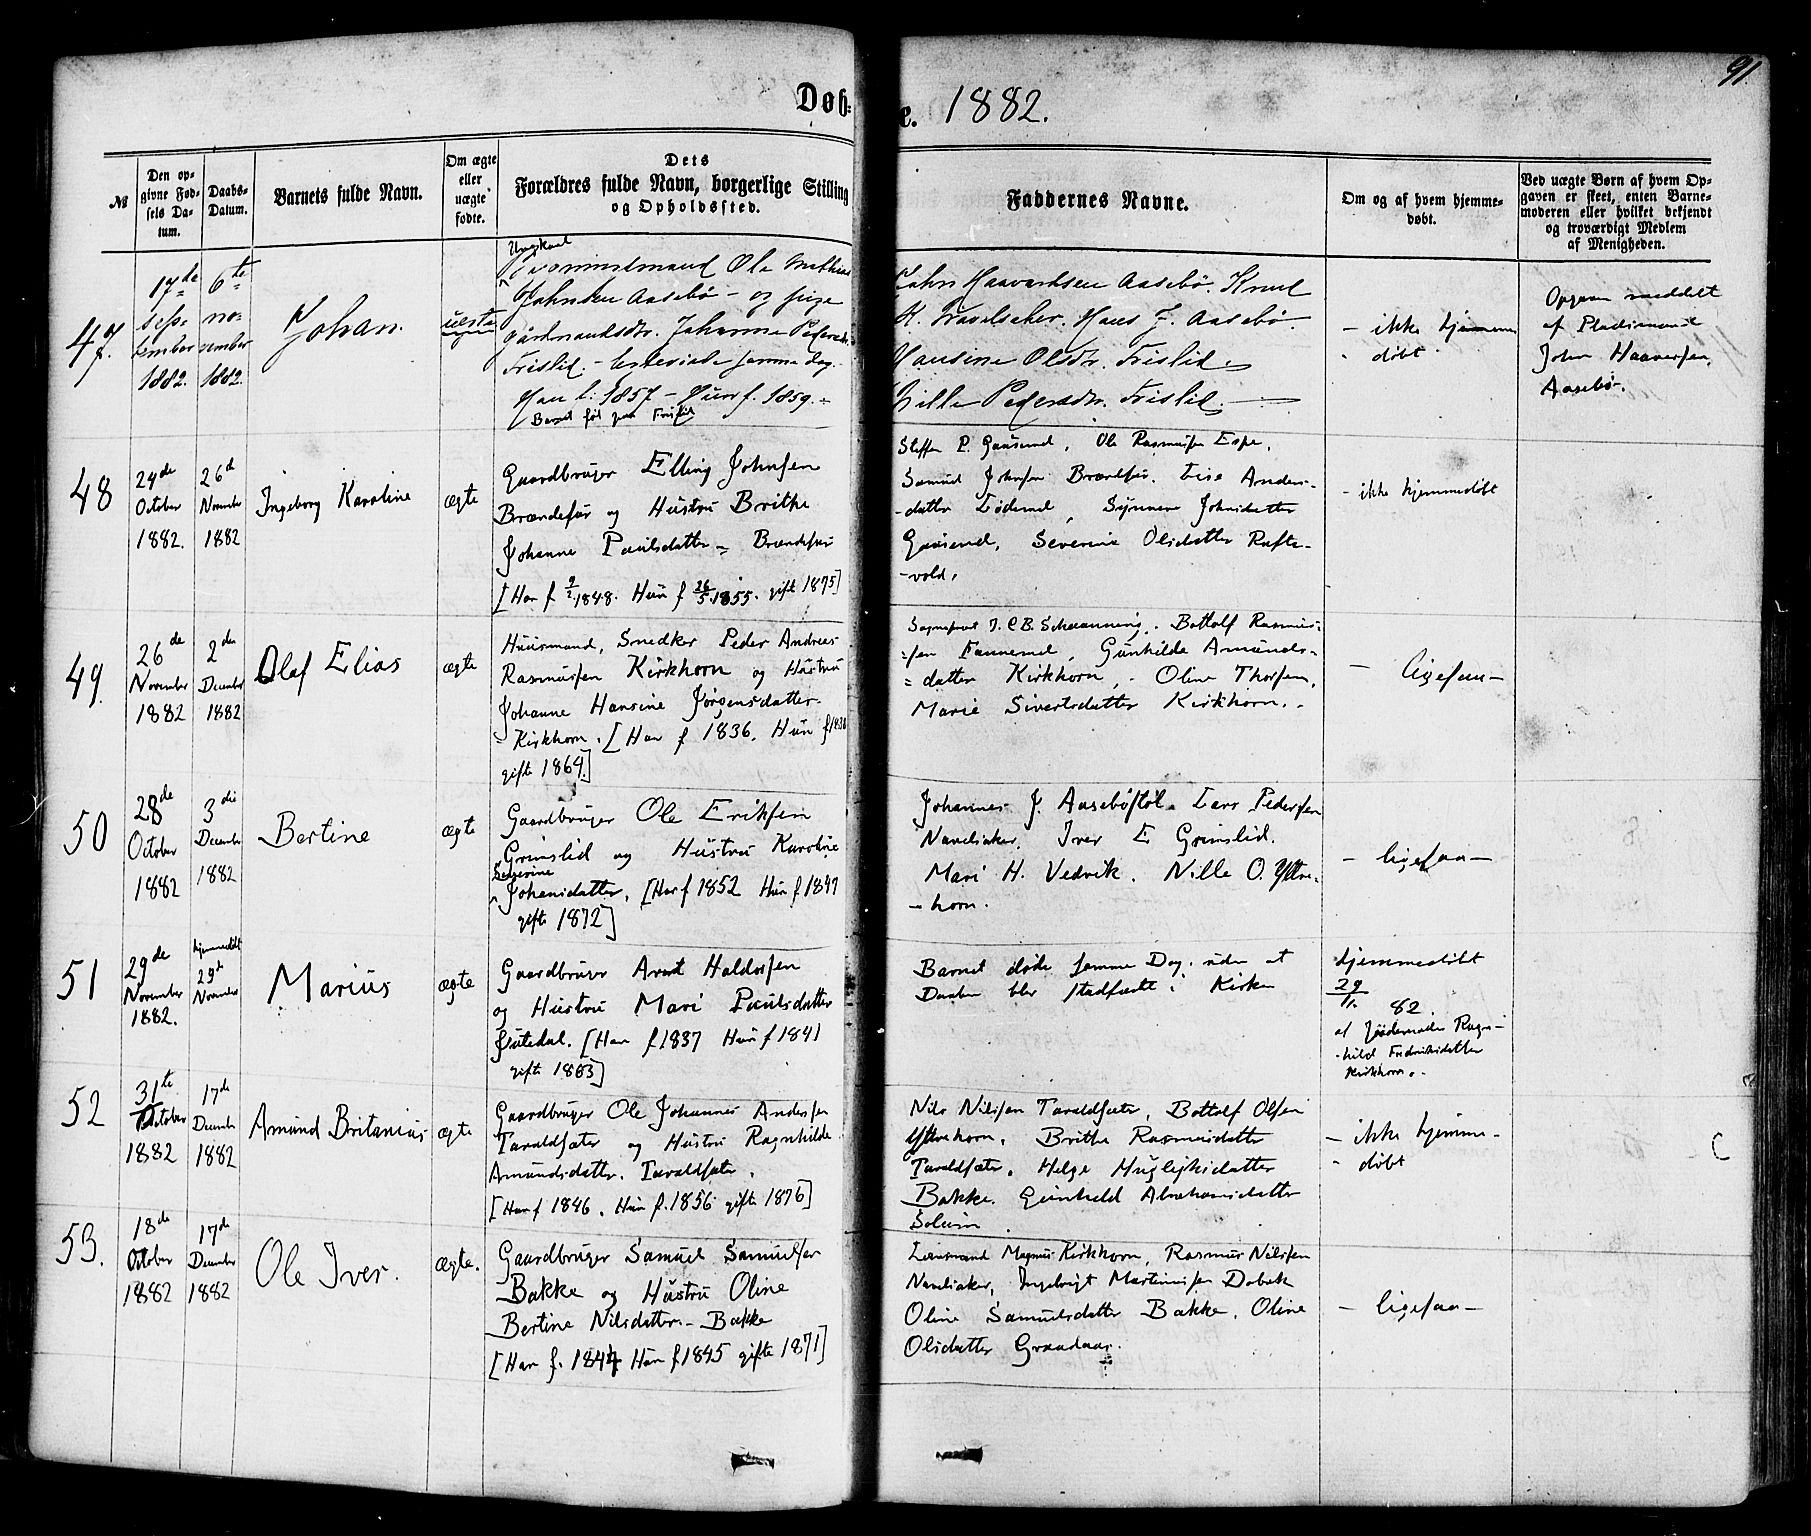 91.
Døb-
e. 1882.
№
Den op-
givne Fød-
sels Da-
tum.
Daabs-
Datum.
Barnets fulde Navn.
Om ægte
eller
uægte
fødte.
Dets
Forældres fulde Navn, borgerlige Stilling
og Opholdssted.
Faddernes Navne.
Om og af hvem hjemme-
døbt.
Ved uægte Børn af hvem Op-
gaven er skeet, enten Barne-
moderen eller hvilket bekjendt
og troværdigt Medlem
af Menigheden.
47.
17de
sep-
tember
1882.
6te
no-
vember
1882.
Johan.
uægte
Ungkarl
Ole Mathias
Johnsen Aasebø - og pige
gårdmandsdtr. Johanne Pedersdtr.
Frislid. - samme dag.
Han f: 1857 - Hun f. 1859. -
Barnet født paa Frislid
John Haavardsen Aasebø. Knut
K. Travelsaker. Hans J. Aasebø.
Hansine Olsdtr. Frislid.
Nille Pedersdtr. Frislid.
- ikke hjemme
- døbt.
Opgave meddelt
af Pladsmand
John Haaversen,
Aasebø.
48
24de
October
1882.
26d
November
1882
Ingeborg Karoline
ægte
Gaardbruger Elling Johnsen
Brændefur og Hustru Brithe
Johanne Paulsdatter = Brændefur
[Han f 9/2 1848. Hun f 26/5 1855. gift 1875]
Steffen P. Gaasemd, Ole Rasmusen Espe,
Samuel Johnsen Brændefur. Lise Anders-
-datter Lødemel, Synneve Johnsdatter
Gaasemd, Severine Olsdatter Rafte-
-vold,
- ikke hjemmedøbt
49.
26de
November
1882
2den
December
1882
Olaf Elias
ægte
Huusmand, Snedker Peder Andreas
Rasmusen Kirkhorn og Hustru
Johanne Hansine Jørgensdatter
- Kirkhorn. [Han f 1836. Hun f 1838
gifte 1864.]
Sogneprest J. C B. Schwanning, Bottolf Rasmus-
-sen Fannemel, Gunhilde Amunds-
= datter Kirkhorn, Oline Thorsen,
Marie Sivertsdatter Kirkhorn.
- ligesaa -
50
28de
October
1882
3die
December
1882
Bertine
ægte
Gaardbruger Ole Eriksen
Grimslid og Hustru Karoline
Severine
Johansdatter, [Han f 1852 Hun f 1847
gifte 1872]
Johannes J. Aasebøstøl. Lars Pedersen
Navelsaker, Iver E Grimslid.
Mari H. Vedvik. Nille O. Yttre-
- horn.
- ligesaa -
51
29de
November
1882.
hjemmedøbt
29de
November
Marius
ægte
Gaardbruger Arent Haldorsen
og Hustru Mari Paulsdatter
[Han f 1837 Hun f 1841
gifte 1863]
Barnet døde samme Dag, uden at
Daaben blev stadfæstet i Kirke
hjemmedøbt
29
82.
af Jordemoder Ragn-
-hild Fredriksdatter
Kirkhorn.
52
31te
October
1882
17de
December
1882
Amund Britanius
ægte
Gaardbruger Ole Johannes Andersen
Taraldsæter og Hustru Ragnhilde
Amundsdatter. Taraldsæter.
[Han f 1846. Hun f. 1856 gifte 1876]
Nils Nilsen Taraldsæter, Bottolf Olsen
Yttrehorn, Brithe Rasmusdatter
Taraldsæter. Helge Huglejksdatter
Bakke. Gunhild Abrahamsdatter
Soleim.
- ikke hjemme-
- døbt
53.
18de
October
1882
17de
December
1882
Ole Iver.
ægte.
Gaardbruger Samuel Samuelsen
Bakke og Hustru Oline
Bertine Nilsdatter - Bakke
[Han f. 1844 Hun f 1845 gifte 1871]
Lensmand Magnus Kirkhorn, Rasmus Nilsen
Navelsaker, Ingebrigt Martinusen Dabak
Oline Samuelsdatter Bakke. Oline
Olsdatter Graadaas.
- ligesaa -